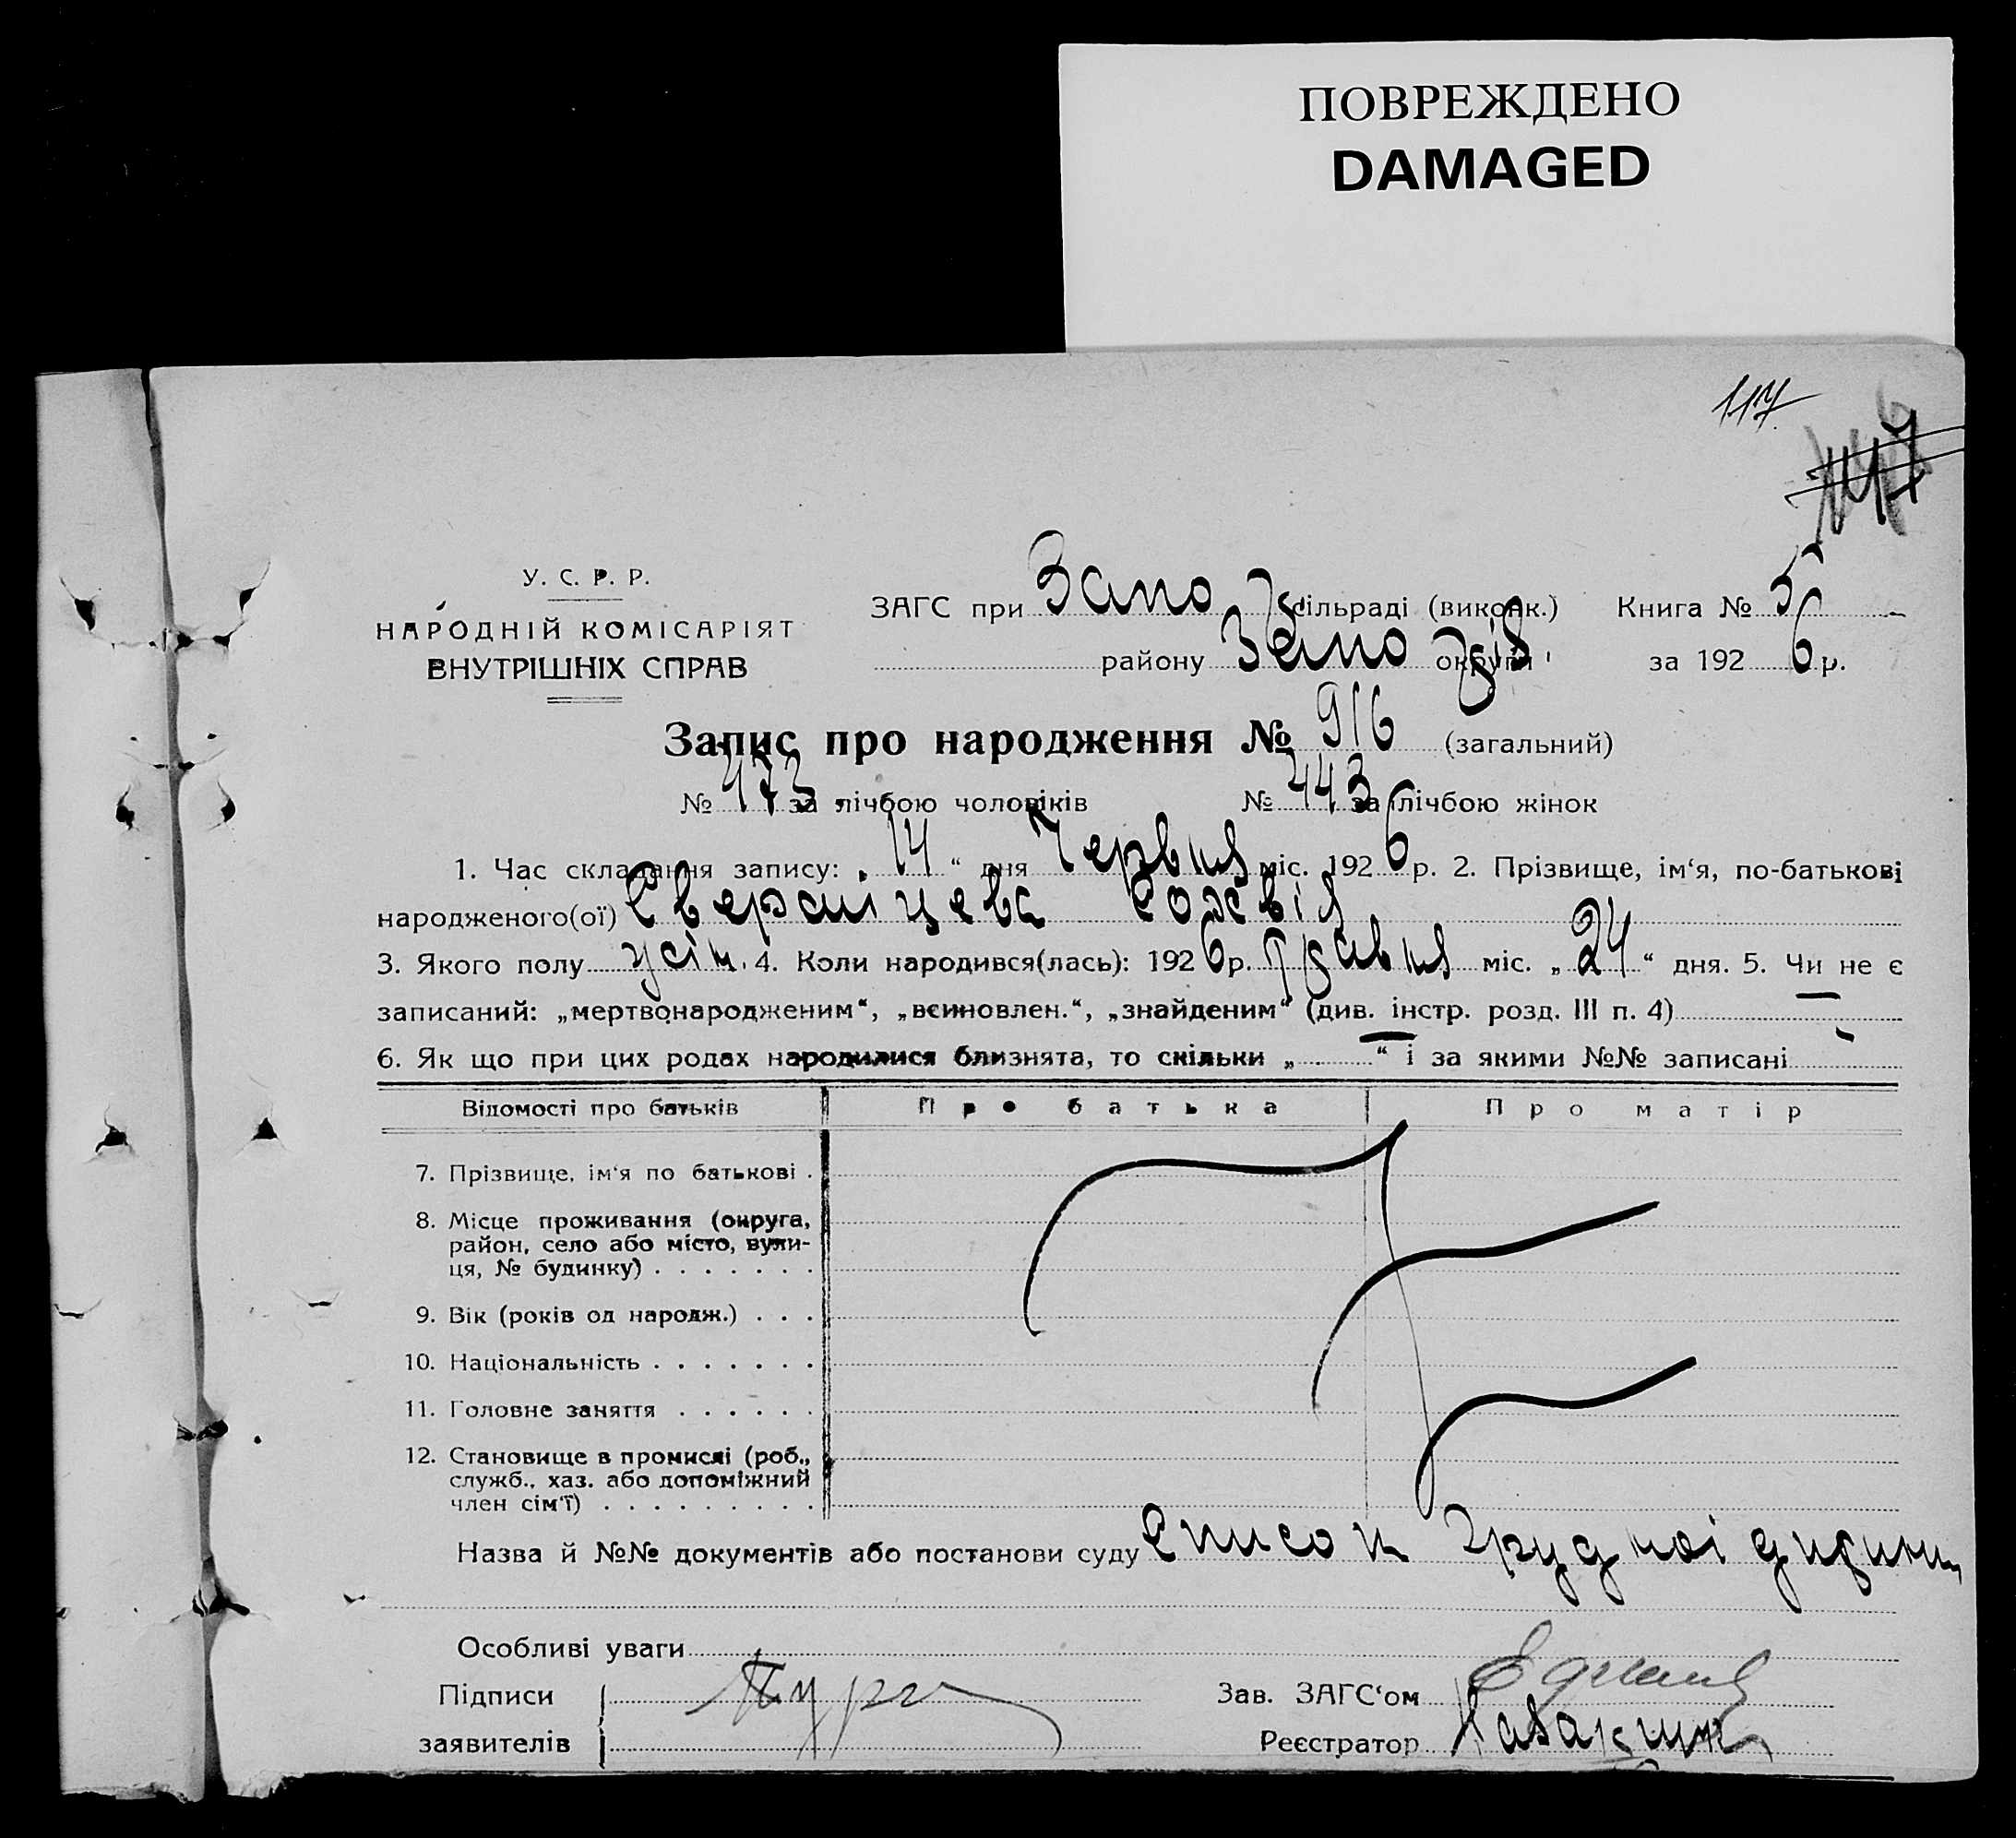 ПОВРЕЖДЕНО
DAMAGED
117
117
У. С. Р. Р.
НАРОДНІЙ КОМІСАРІЯТ
ВНУТРІШНІХ СПРАВ
ЗАГС при Запо сільраді (виконк.) Книга № 5
району Запо округи за 1926 р.
Запис про народження № 916 (загальний)
№ 473 за лічбою чоловіків № 443 за лічбою жінок
1. Час складання запису: „14“ дня Червня міс. 1926 р. 2. Прізвище, ім‘я, по-батькові
народженого(ої)
3. Якого полу жін. 4. Коли народився(лась): 1926 р. Травня міс. „24“ дня. 5. Чи не є
записаний: „мертвонародженим“, „всиновлен.“, „знайденим“ (див. інстр. розд. III п. 4)
6. Як що при цих родах народилися близнята, то скільки „ “ і за якими №№ записані
Відомості про батьків Про батька Про матір
7. Прізвище, ім‘я по батькові .
8. Місце проживання (округа,
район, село або місто, вули-
ця, № будинку) . . . . . . .
9. Вік (років од народж.) . . .
10. Національність . . . . . . .
11. Головне заняття . . . . . .
12. Становище в промислі (роб.,
служб., хаз. або допоміжний
член сім‘ї) . . . . . . . . .
Назва й №№ документів або постанови суду Список грудної дитини
Особливі уваги
Підписи Зав. ЗАГС‘ом
заявителів Реєстратор